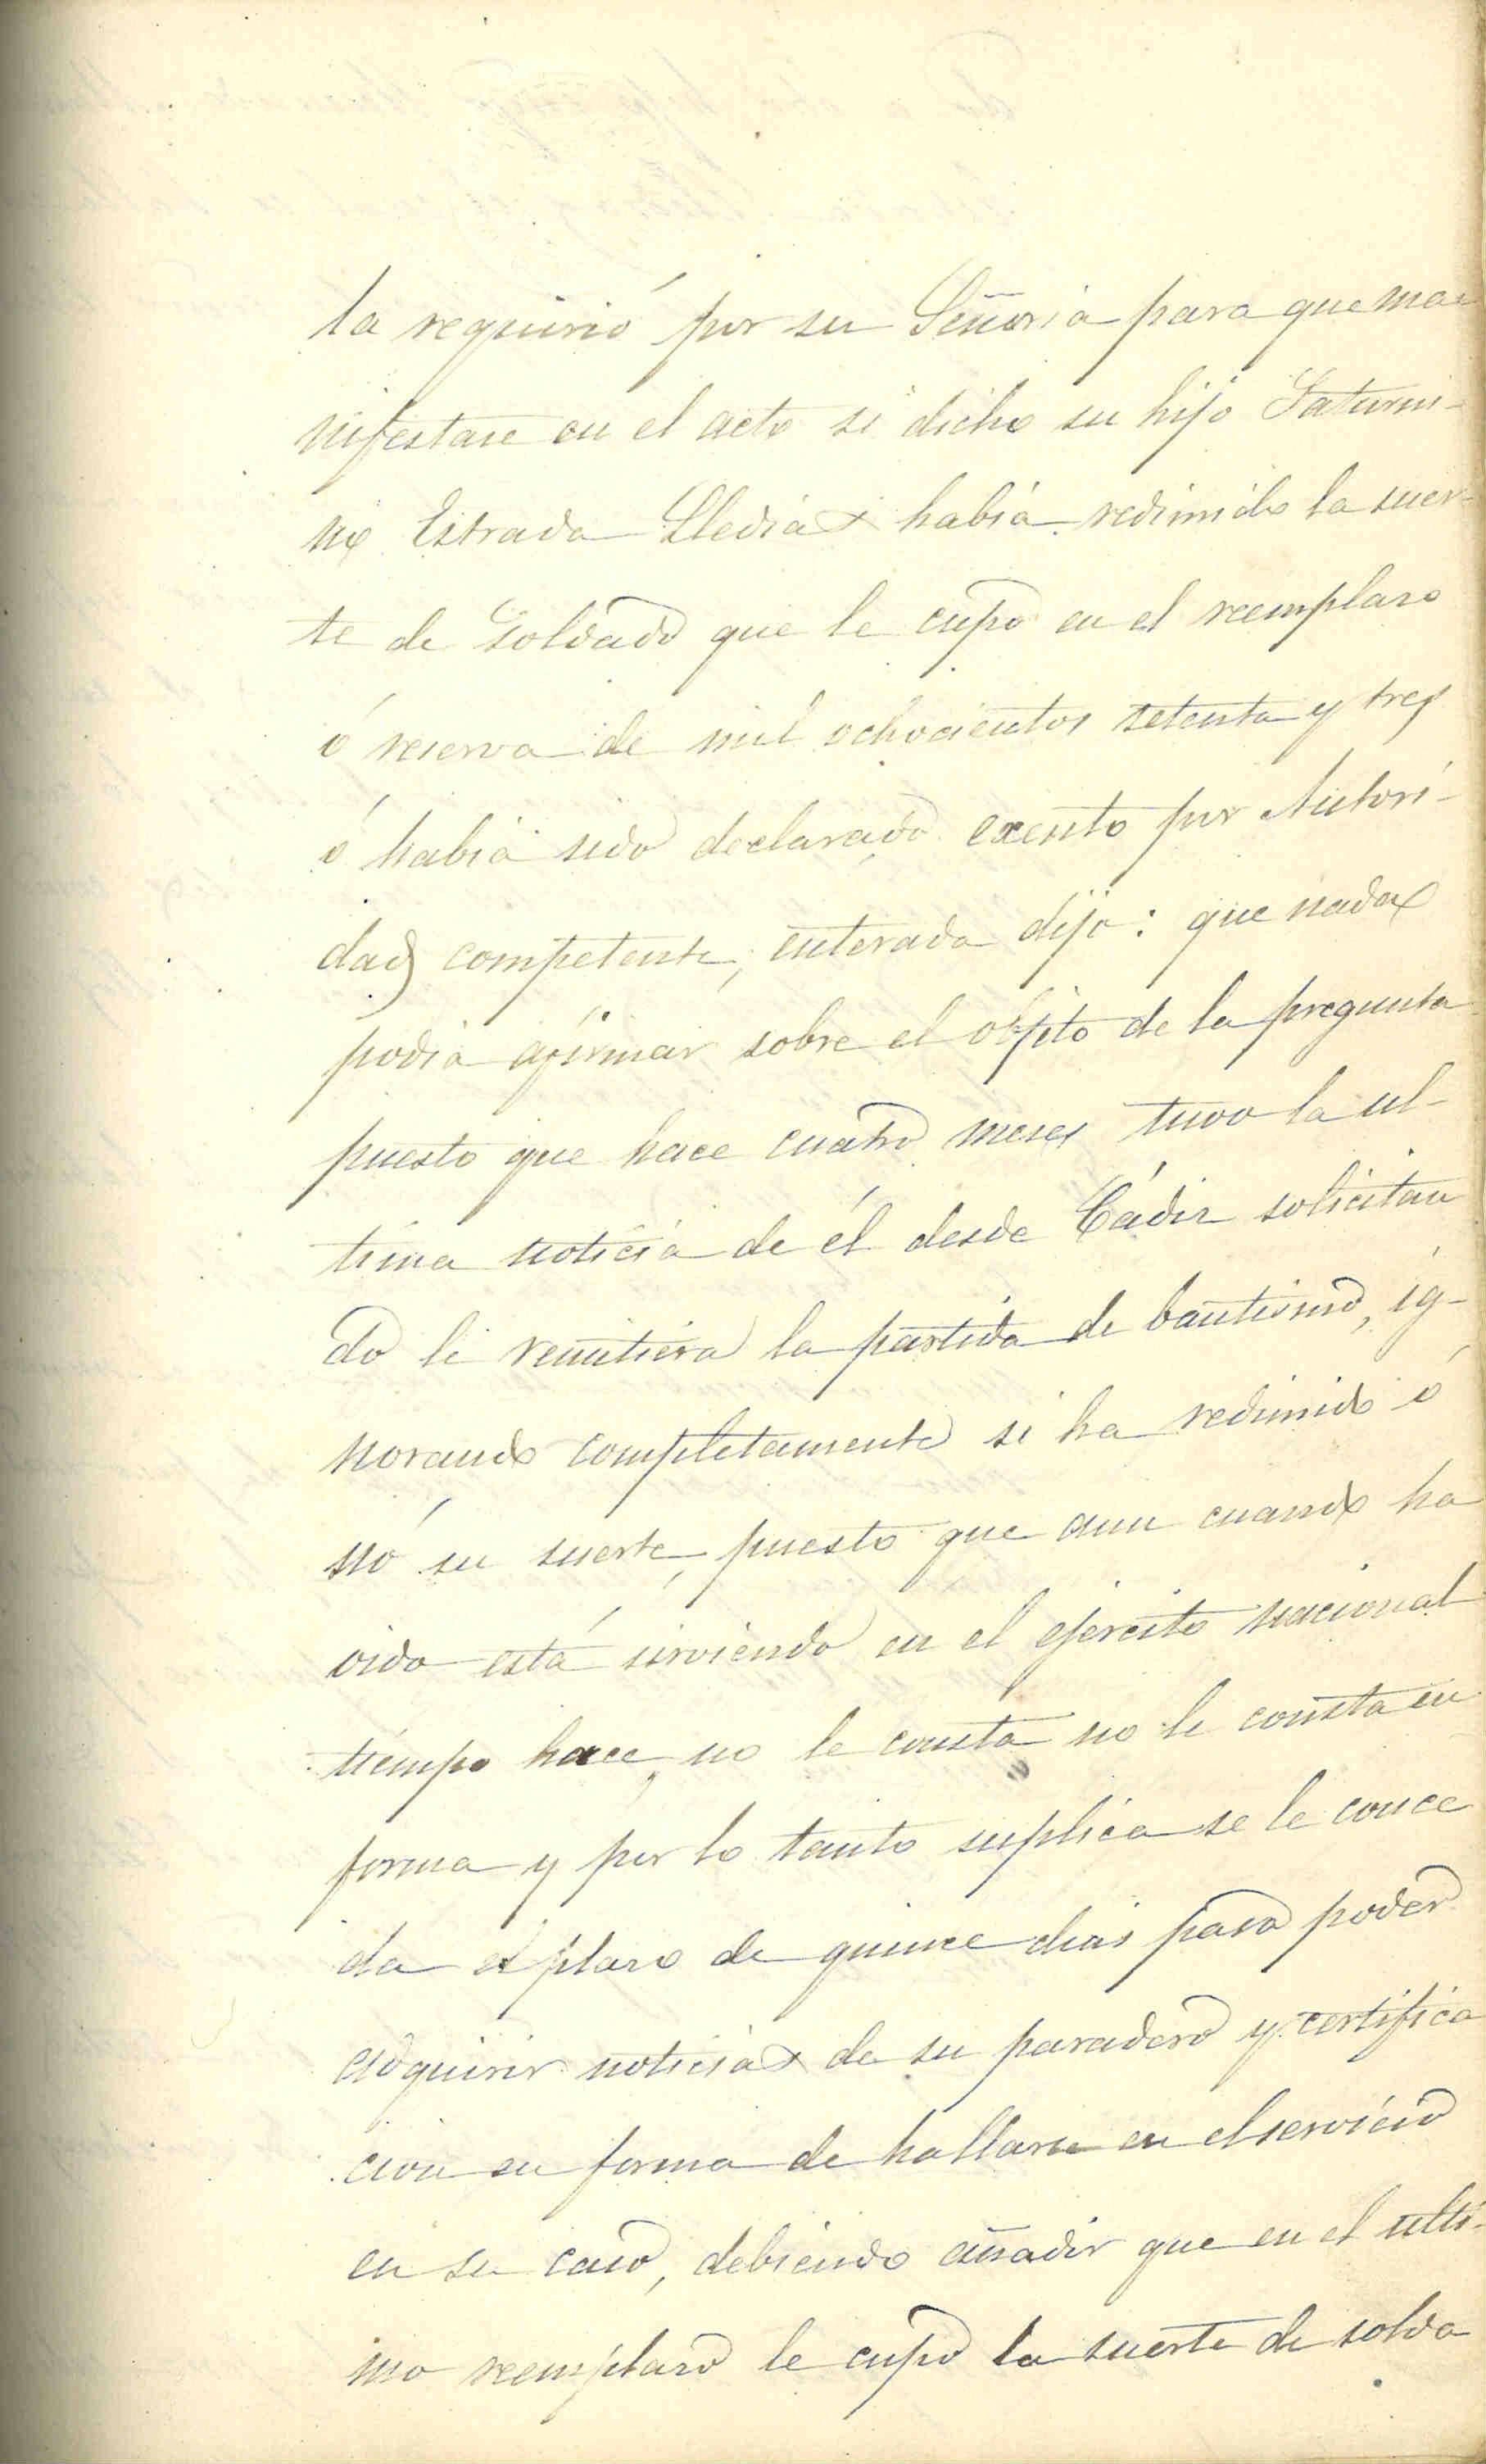 la requirió por su Señoria para que ma-
nifestase en el acto si dicho su hijo Saturni-
no Estrada Lledias habia redimido la suer-
te de Soldado que le cupo en el reemplaso
ó reserva de mil ochocientos setenta y tres
ó habia sido declarado exento por Autori-
dad competente, enterada dijo: que nada
podia afirmar sobre el objeto de la pregunta
puesto que hace cuatro meses tuvo la ul-
tima noticia de él desde Cádiz solicitan
do le remitiera la partida de bautismo, ig-
norando completamente si ha redimido ó
nó su suerte, puesto que aun cuando ha
oido está sirviendo en el ejército nacional
tiempo hace, no le consta no le consta en
forma y por lo tanto suplica se le conce
da el plaso de quince dias para poder
adquirir noticias de su paradero y certifica
cion en forma de hallarse en el servicio
en su caso, debiendo añadir que en el ulti-
mo reemplaso le cupo la suerte de solda